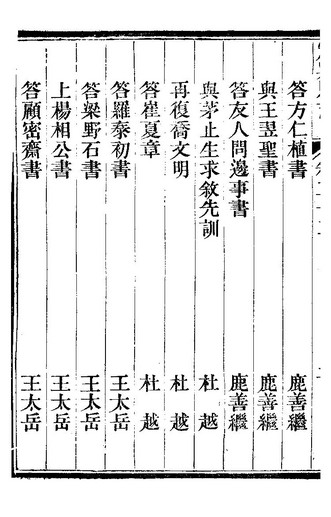 答方仁植書 鹿善繼
與王昱聖書 鹿善繼
答友人問邊事書 鹿善繼
與茅止生求敘先訓 杜越
再復喬文明 杜越
答崔夏章 杜越
答羅泰初書 王太岳
答梁野石書 王太岳
上楊相公書 王太岳
答顧密齋書 王太岳